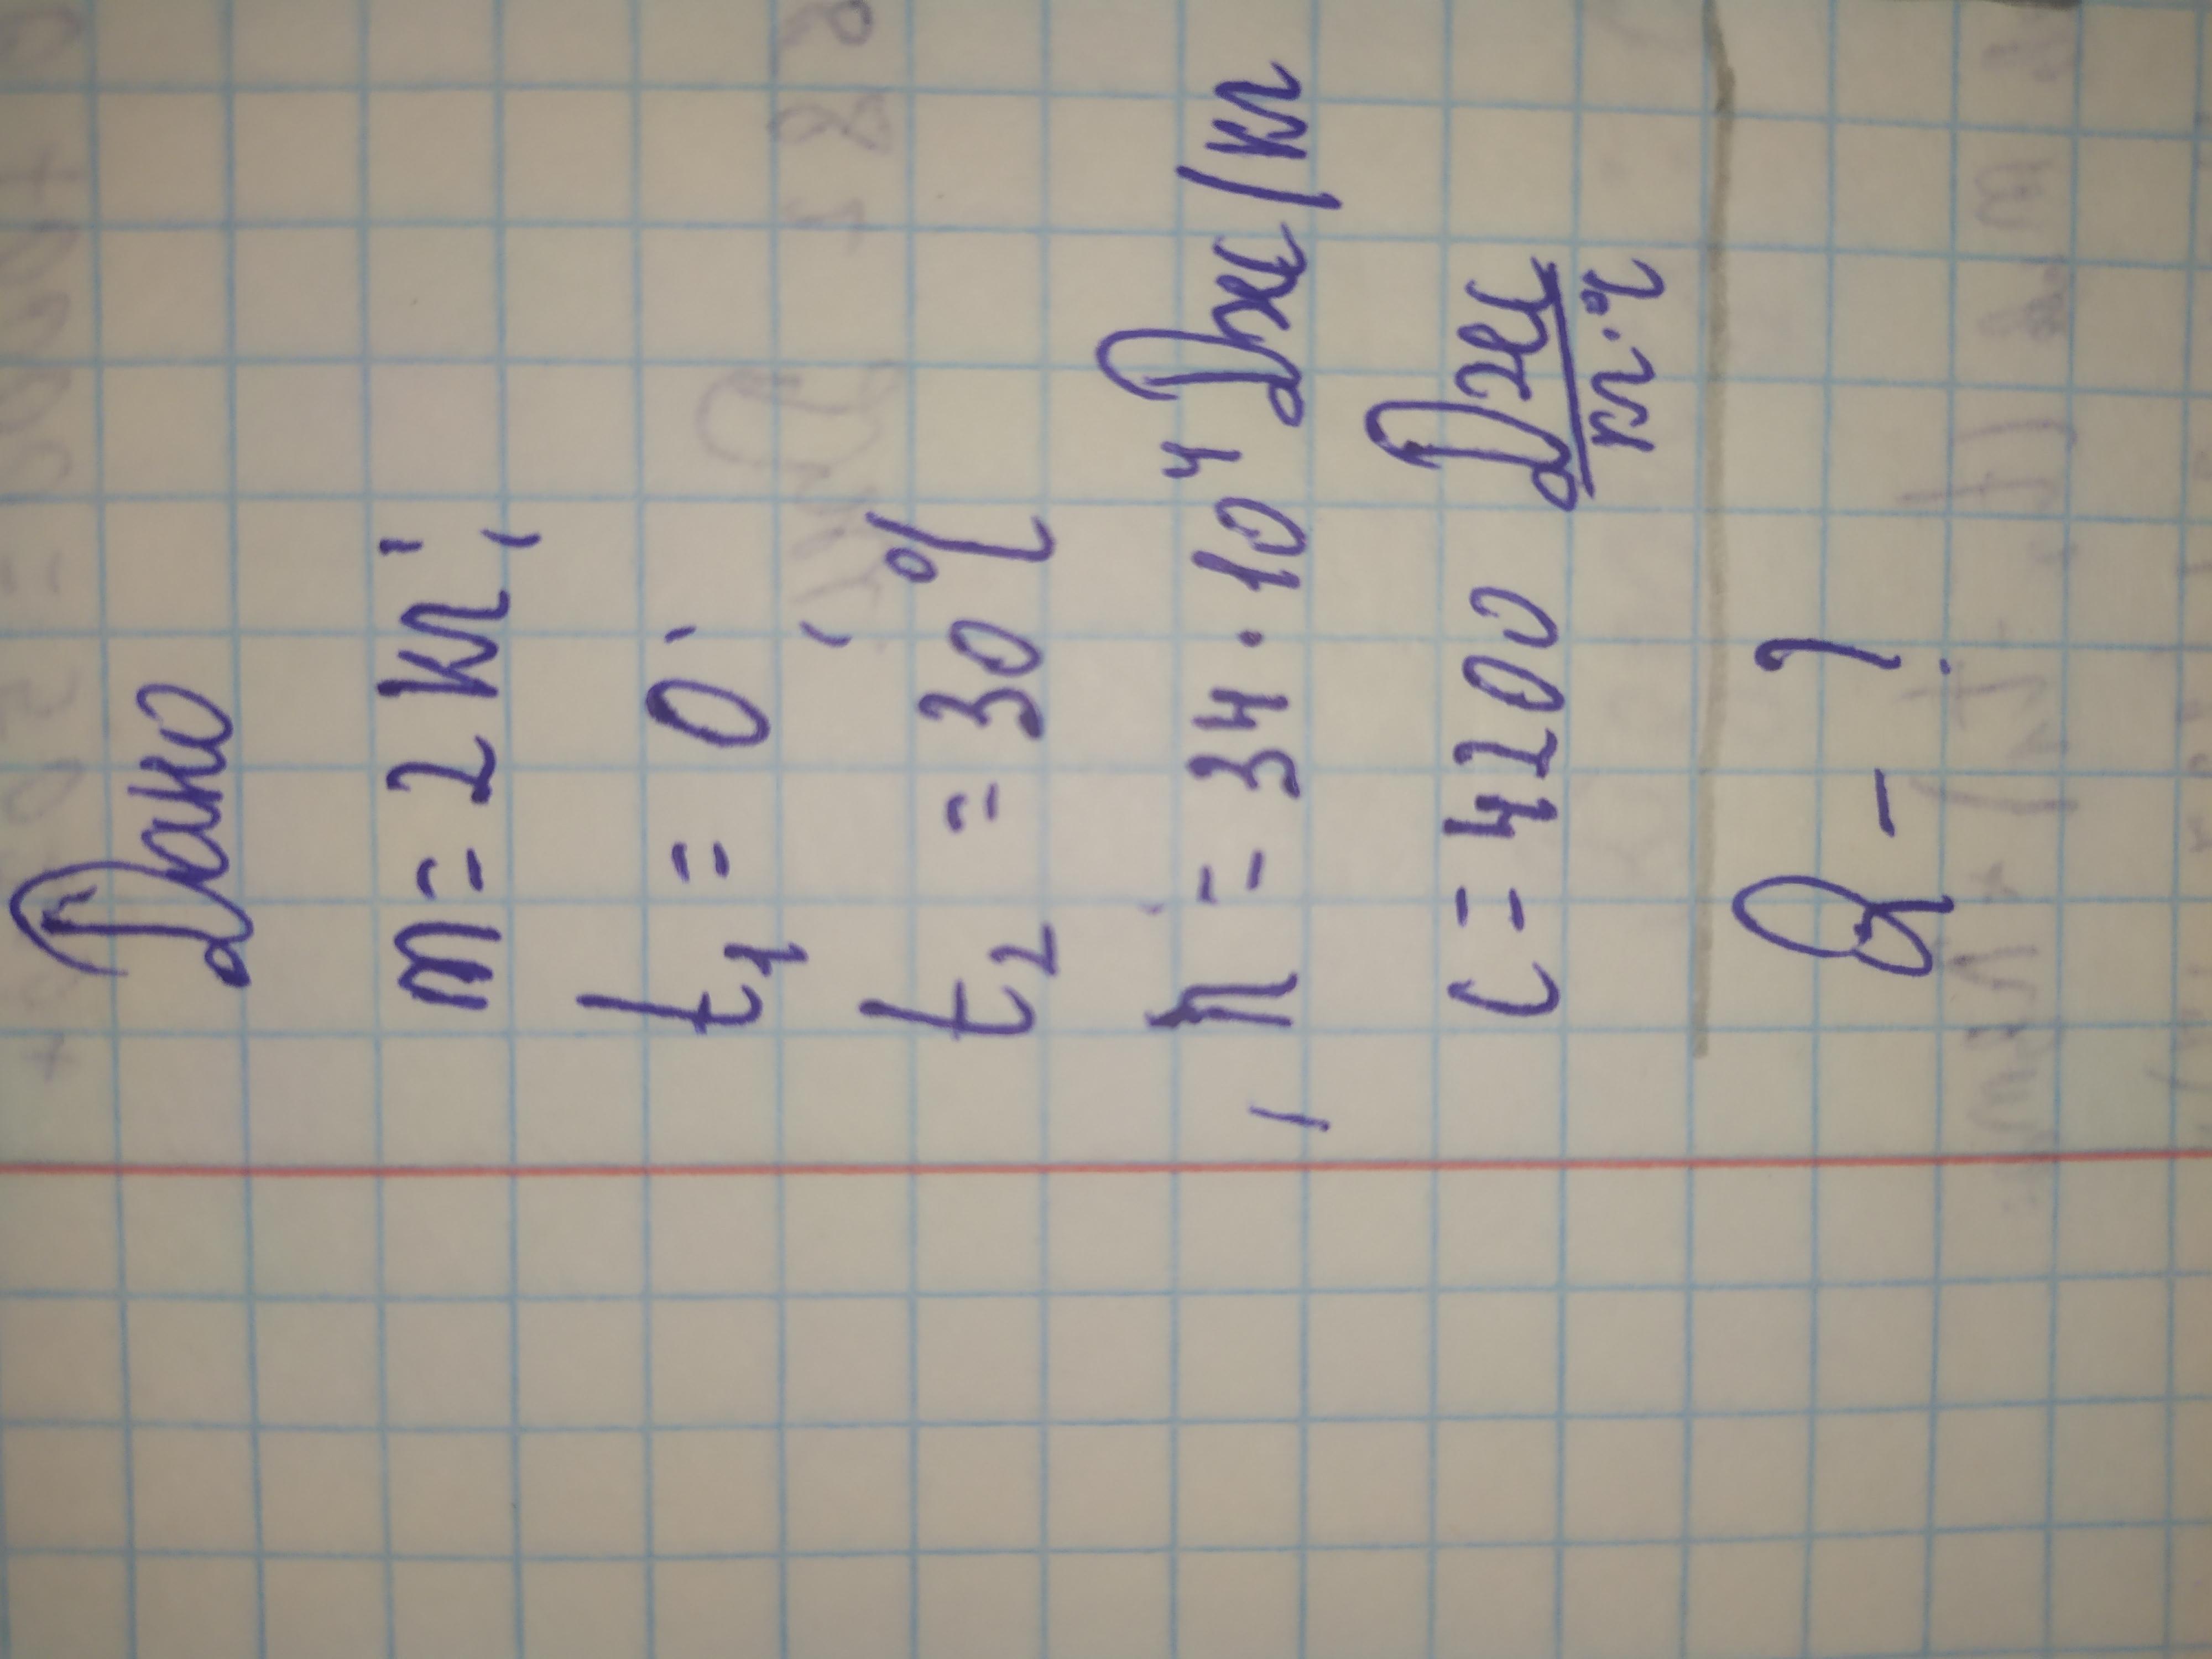 Дано
m = 2 кг;
t₁ = 0
t₂ = 30 °C
λ = 34 · 10⁴ Дж/кг
c = 4200 Дж/кг·°C
Q - ?